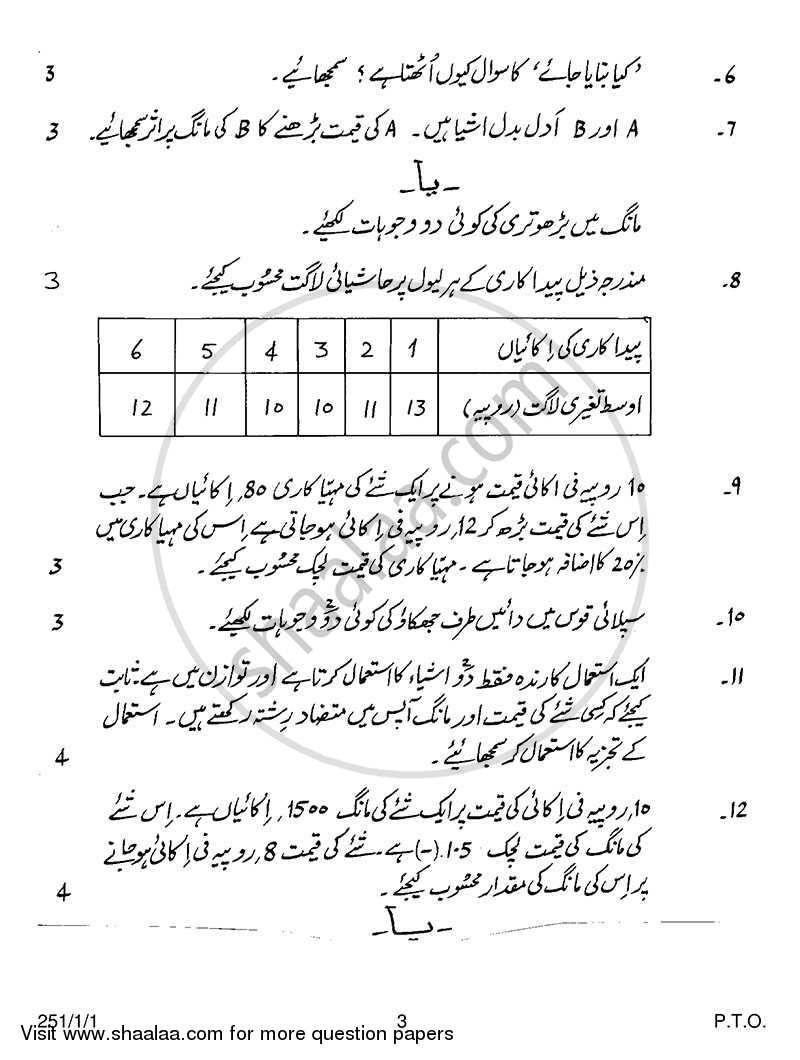 6۔ ’کیا بنایا جائے‘ کا سوال کیوں اُٹھتا ہے؟ سمجھائیے۔ 3
7۔ A اور B اَدل بدل اشیا ہیں۔ A کی قیمت بڑھنے کا B کی مانگ پر اثر سمجھائیے۔ 3
۔یا۔
مانگ میں بڑھوتری کی کوئی دو وجوہات لکھئے۔
8۔ مندرجہ ذیل پیداکاری کے ہر لیول پر حاشیائی لاگت محسُوب کیجئے۔ 3
پیداکاری کی اِکائیاں 1 2 3 4 5 6
اوسط تغیری لاگت (روپیہ) 13 11 10 10 11 12
9۔ 10 روپیہ فی اکائی قیمت ہونے پر ایک شئے کی مہیّا کاری 80 اِکائیاں ہے۔ جب
اِس شئے کی قیمت بڑھ کر 12 روپیہ فی اِکائی ہوجاتی ہے اِس کی مہیا کاری میں
20% کا اضافہ ہوجاتا ہے۔ مہیّا کاری کی قیمت لچک محسُوب کیجئے۔ 3
10۔ سپلائی قوس میں دائیں طرف جھکاؤ کی کوئی دو وجوہات لکھیئے۔ 3
11۔ ایک استعمال کارندہ فقط دو اشیاء کا استعمال کرتا ہے اور توازن میں ہے۔ ثابت
کیجئے کہ کسِی شئے کی قیمت اور مانگ آپس میں متضاد رِشتہ رکھتے ہیں۔ استعمال
کے تجزیہ کا استعمال کر سمجھائیے۔ 4
12۔ 10 روپیہ فی اِکائی کی قیمت پر ایک شئے کی مانگ 1500 اِکائیاں ہے۔ اِس شئے
کی مانگ کی قیمت لچک 1.5(−) ہے۔ شئے کی قیمت 8 روپیہ فی اِکائی ہوجانے
پر اِس کی مانگ کی مقدار محسُوب کیجئے۔ 4
۔یا۔
251/1/1 3 P.T.O.
Visit www.shaalaa.com for more question papers
shaalaa.com